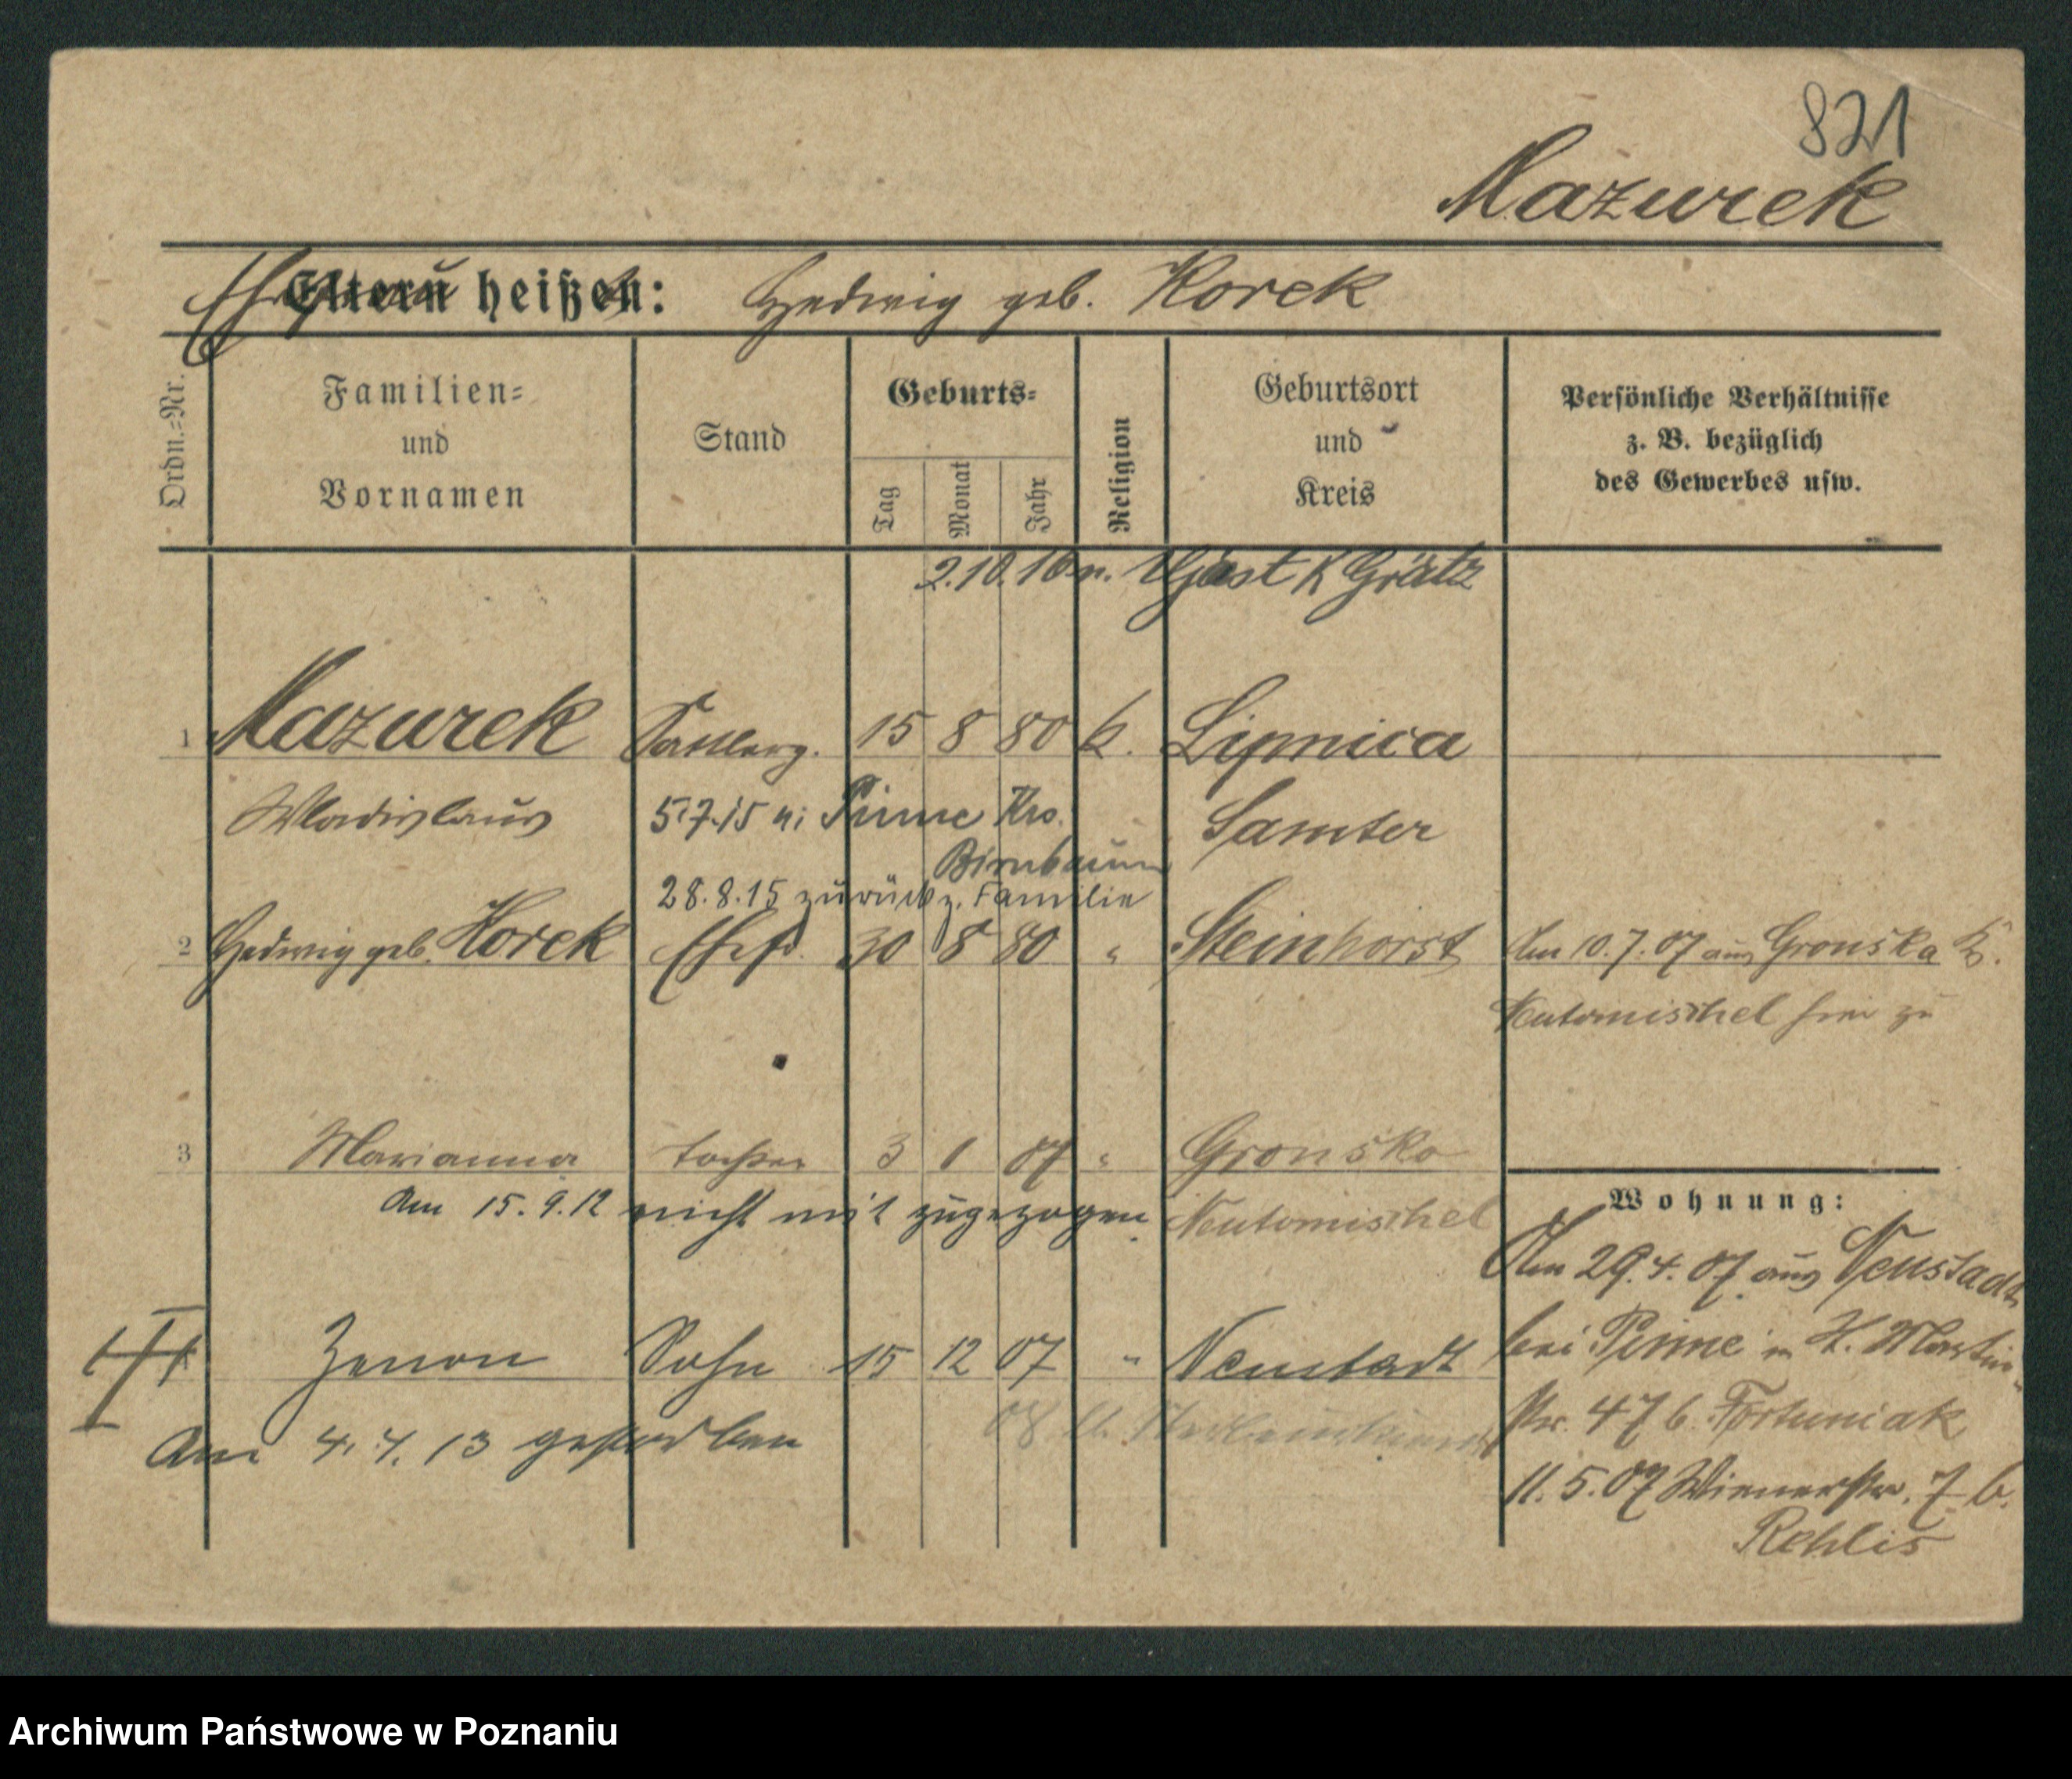 821
Mazurek
Eltern heißen: Hedwig geb. Korek
Ordn.-Nr.
Familien-
und
Vornamen
Stand
Geburts-
Tag
Monat
Jahr
Religion
Geburtsort
und
Kreis
Persönliche Verhältnisse
z. B. bezüglich
des Gewerbes usw.
2.10.16 n. K Grätz
1 Mazurek Sattlerg. 15 8 80 k. Lipnica
Wladislaus 5.7.15 n. Pinne Krs. Samter
Birnbaum
28.8.15 zurück z. Familie
2 Hedwig geb. Korek Ehefr. 30 8 80 " Steinhorst Am 10.7.07 aus Gronsko K.
Neutomischel hier zu
3 Marianna Tochter 3 1 07 " Gronsko
Am 15.9.12 nicht mit zugezogen. Neutomischel
Wohnung:
Am 29.4.07 aus Neustadt
bei Pinne in St. Martin-
Zenon Sohn 15 12 07 " Neustadt
str. 47 b. Fortuniak
08 lt.
Am 4.4.13 gestorben
11.5.07 Wienerstr. 7 b.
Rehlis
Archiwum Państwowe w Poznaniu